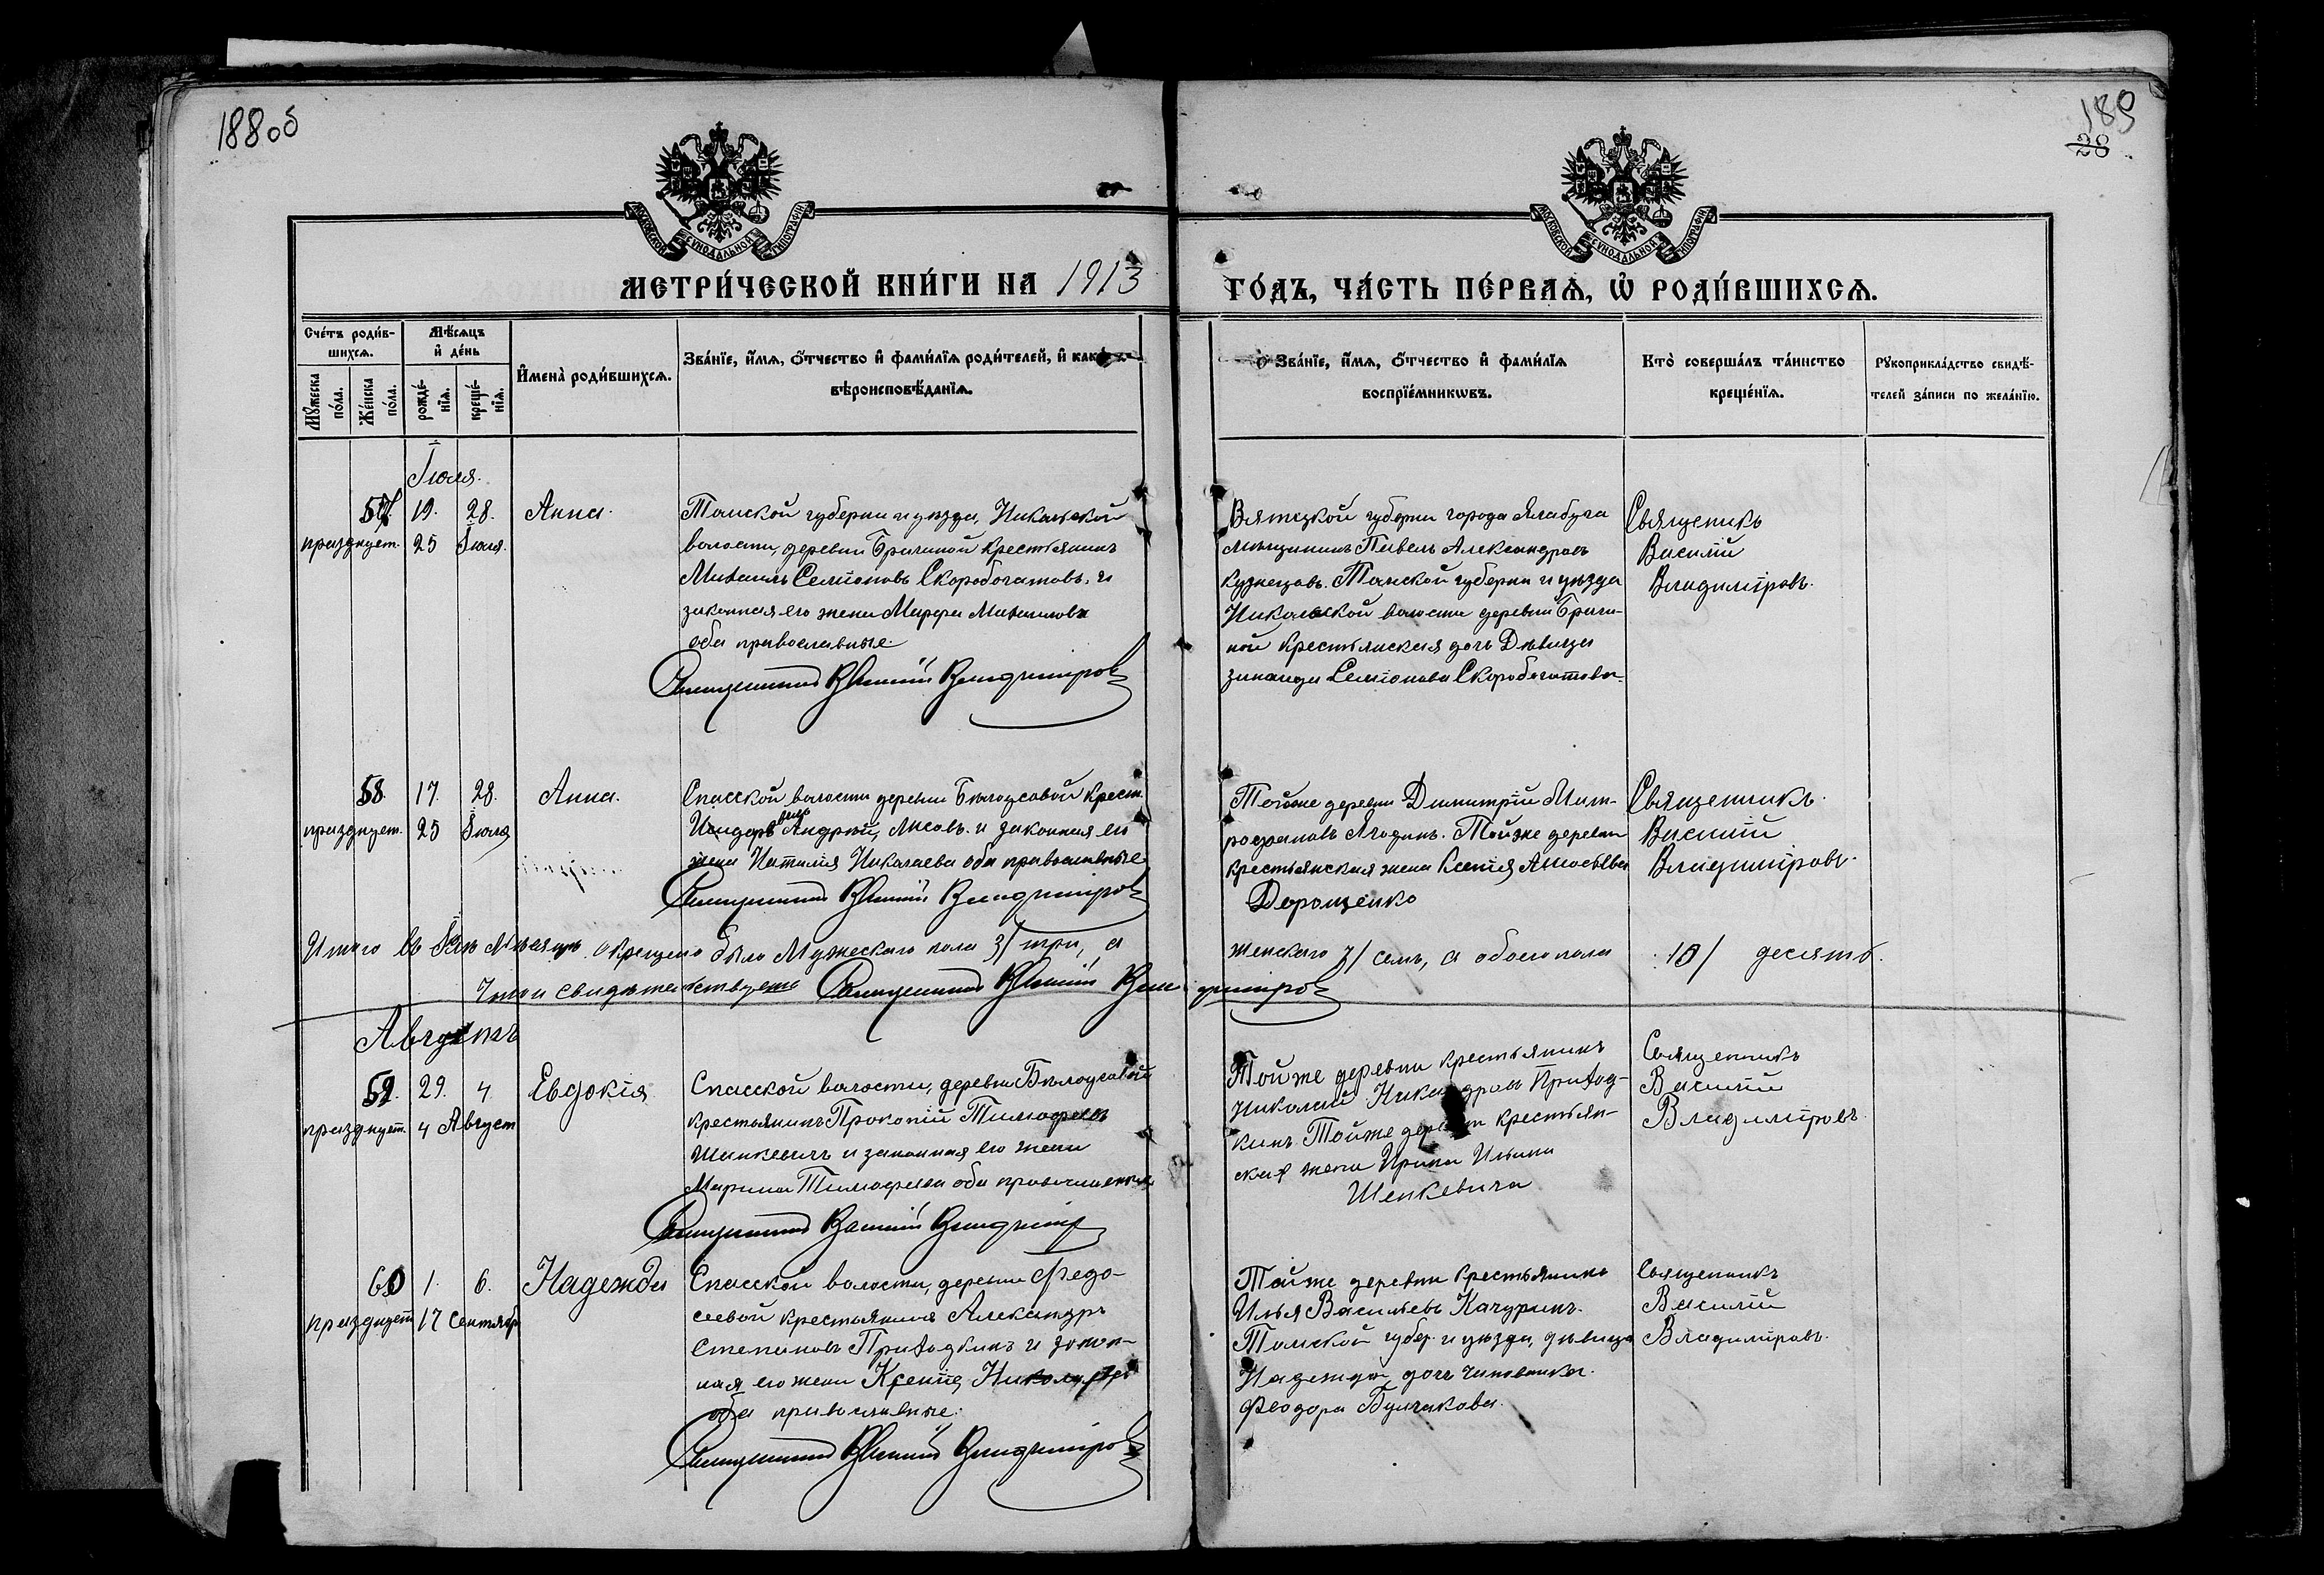 188об
189
28
МОСКОВСКОЙ СѴНОДАЛЬНОЙ ТИПОГРАФІИ
МОСКОВСКОЙ СѴНОДАЛЬНОЙ ТИПОГРАФІИ
МЕТРИ́ЧЕСКОЙ КНИ́ГИ НА 1913
ГО́ДЪ, ЧА́СТЬ ПЕ́РВАѦ, Ѡ҆ РОДИ́ВШИХСѦ.
Сче́тъ роди́в-
шихсѧ.
Мꙋ́жеска по́ла.
Же́нска по́ла.
Мѣ́сѧцъ
и҆ де́нь
рожде́-
нїѧ.
креще́-
нїѧ.
И҆мена̀ роди́вшихсѧ.
Зва́нїе, и҆́мѧ, ѻ҆́тчество и҆ фами́лїѧ роди́телей, и҆ како́гѡ
вѣроисповѣ́данїѧ.
Зва́нїе, и҆́мѧ, ѻ҆́тчество и҆ фами́лїѧ
воспрїе́мникѡвъ.
Кто̀ соверша́лъ та́инство
креще́нїѧ.
Рꙋкоприкла́дство свидѣ́-
телей за́писи по жела́нїю.
Іюля.
57. 19. 28. Анна.
празднует. 25 Іюля.
Томской губернии и уезда, Никольской
волости, деревни Брагиной крестьянинъ
Михаилъ Семіоновъ Скоробогатовъ, и
законная его жена Марфа Михаилова
оба православные.
Священникъ Василій Владиміровъ
Вятской губернии города Елабуга
мѣщанинъ Павелъ Александровъ
Кузнецовъ. Томской губернии и уѣзда
Никольской волости деревни Браги-
ной крестьянская дочь Дѣвица
Зинаида Семіонова Скоробогатова.
Священикъ
Василій
Владиміровъ.
58. 17. 28. Анна.
празднует. 25 Іюля
Спасской волости деревни Бѣлоусовой крест.
Исидоръ Андрей, Лисовъ. и законная его
жена Наталия Николаева оба православные
Священникъ Василій Владиміровъ
Тойже деревни Димитрій Мит-
рофановъ Ягодинъ. Тойже деревни
крестьянская жена Ксенія
Дорощенко
Священникъ
Василій
Владиміровъ.
Итого въ Іюлѣ Мѣсяцѣ окрещено было Мужескаго пола 3/ три, а
женскаго 7/ семь, а обоего пола 10/ десять.
Что и свидѣтельствуетъ Священникъ Василій Владиміровъ
Августъ
59. 29. 4. Евдокія
празднует. 4 Август
Спасской волости, деревни Бѣлоусовой
крестьянинъ Прокопій Тимофеевъ
Шинкевичъ и законная его жена
Марина Тимофеева оба православные
Священникъ Василій Владиміров
Тойже деревни крестьянинъ
Николай Никандровъ Приход-
кинъ Тойже деревни крестьян-
ская жена Ирина Ильина
Шенкевича
Священникъ
Василій
Владиміровъ.
60 1. 6. Надежда
празднует 17 Сентябр
Спасской волости, деревни Федо-
сеевой крестьянинъ Александръ
Степановъ Приходкинъ и закон-
ная его жена Ксенія Николаева
оба православные.
Священникъ Василій Владиміровъ
Тойже деревни крестьянинъ
Илья Васильевъ Качуринъ.
Томской губер. и уѣзда, дѣвица
Надежда, дочь чиновника.
Феодора Булгакова.
Священникъ
Василій
Владиміровъ.